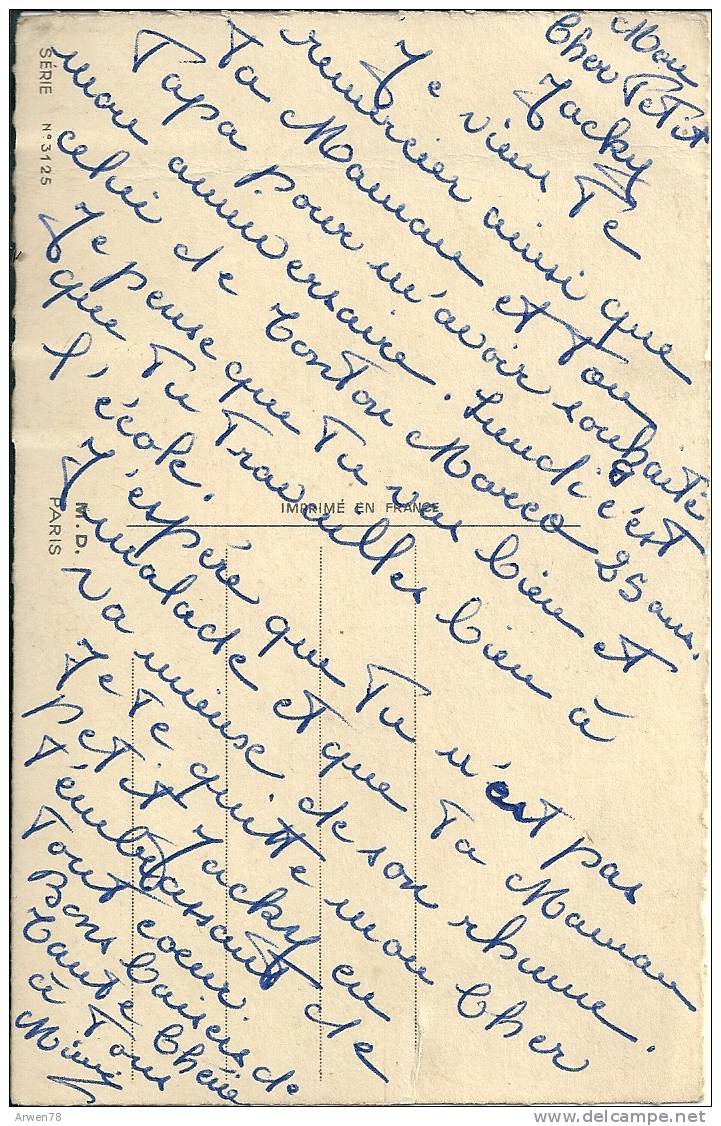 Mon
Cher Petit
Jacky
Je viens Te
remercier ainsi que
Ta Maman et Ton
Papa pour m'avoir souhaité
mon anniversaire. Lundi c'est
celui de Tonton Marco 25 ans.
Je pense que Tu vas bien et
que Tu Travailles bien à
l'école.
J'espère que Tu n'est pas
malade et que Ta Maman
va mieuse de son rhume.
Je Te quitte mon Cher
petit Jacky en
t'embrassant de
Tout coeur.
Bons baisers de
Tante Chérie
à Tous
Mimi
SÉRIE N° 3125
IMPRIMÉ EN FRANCE
M. D.
PARIS
Arwen78
delcampe.net